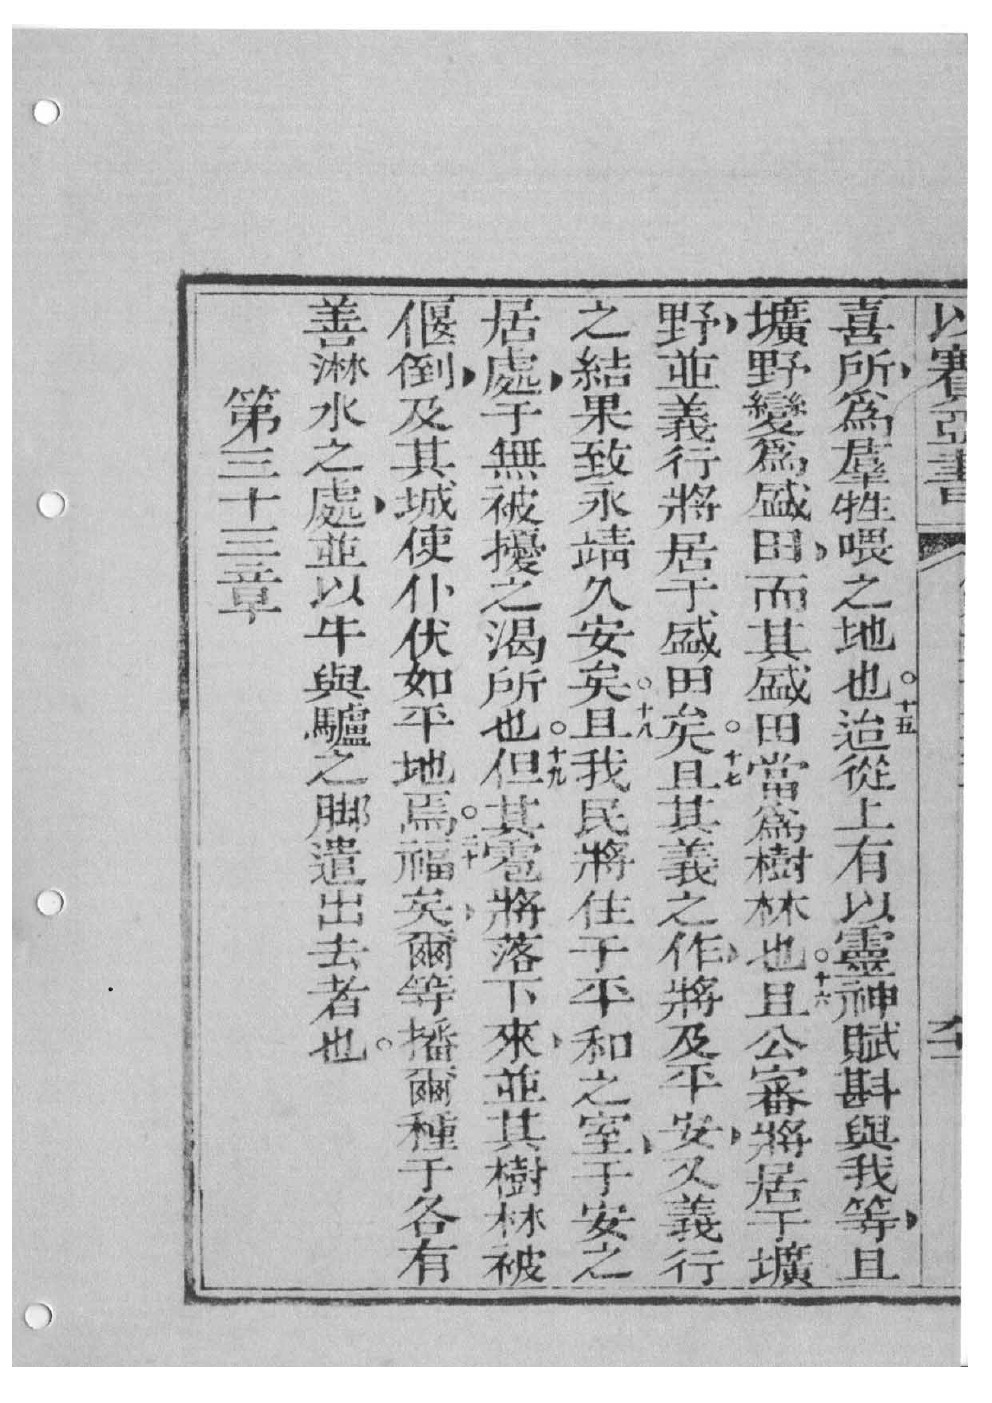 以賽亞書
喜、所爲羣牲喂之地也。十五迨從上有以靈神賦斟與我等、且
壙野變爲盛田、而其盛田當爲樹林也。十六且公審將居于壙
野、並義行將居于盛田矣。十七且其義之作、將及平安、久義行
之結果、致永靖久安矣。十八且我民將住于平和之室、于安之
居處、于無被擾之濁所也。十九但其雹將落下來、並其樹林被
偃倒、及其城使仆伏如平地焉。二十福矣、爾等播爾種于各有
善淋水之處、並以牛與驢之脚遣出去者也。
第三十三章